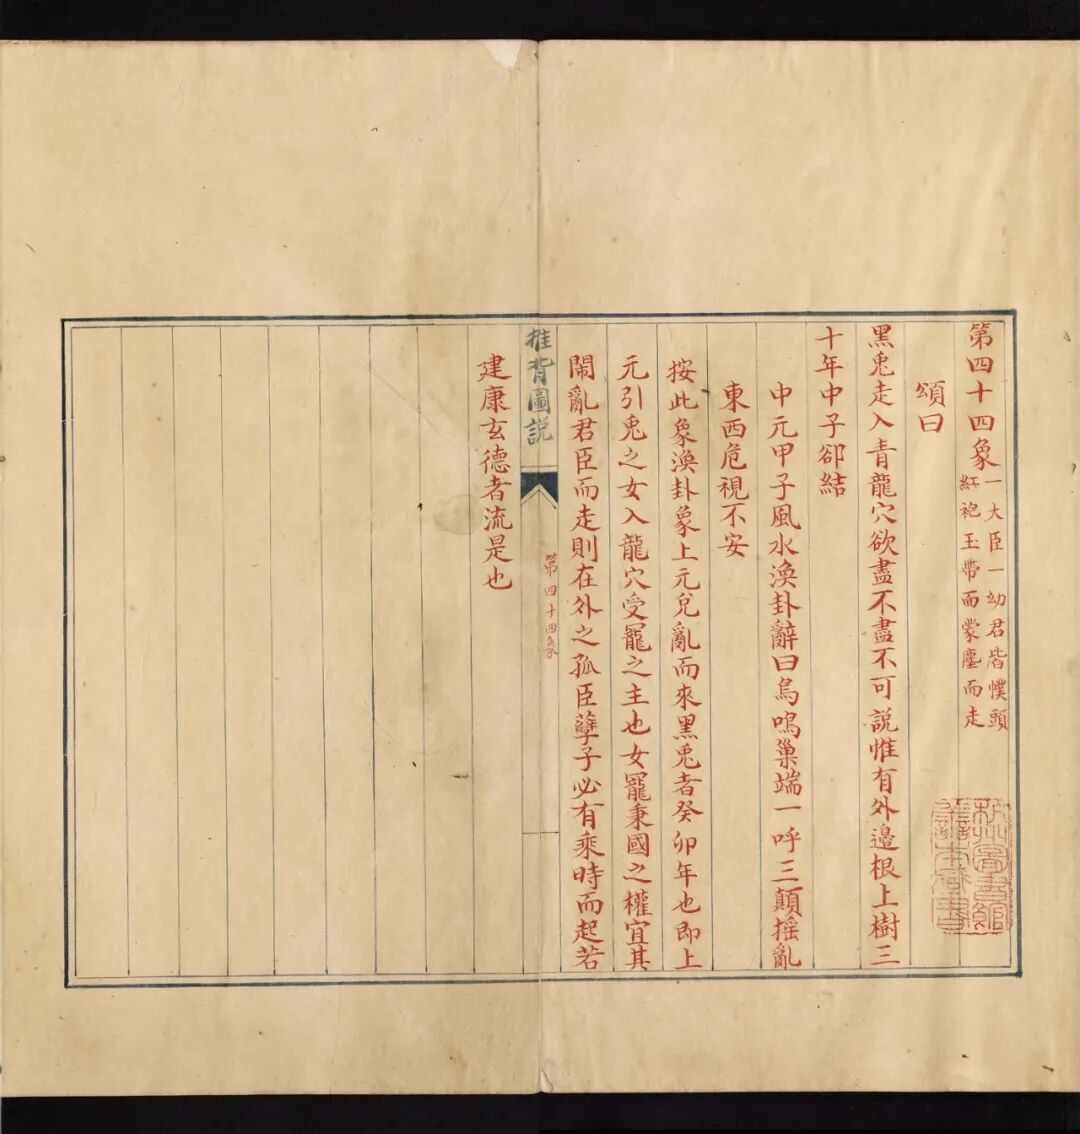 第四十四象
一大臣一幼君皆幞頭
紅袍玉帶面蒙塵而走
頌曰
黑兎走入青龍穴欲盡不盡不可說惟有外邉根上樹三
十年中子卻結
中元甲子風水渙卦辭曰烏鳴巢端一呼三顛搖亂
東西危視不安
按此象渙卦象上元兌亂而來黑兎者癸卯年也即上
元引兎之女入龍穴受寵之主也女寵秉國之權宜其
鬧亂君臣而走則在外之孤臣孽子必有乘時而起若
推背圖説
第四十四象
建康玄德者流是也
杭州圖書館
善本藏書